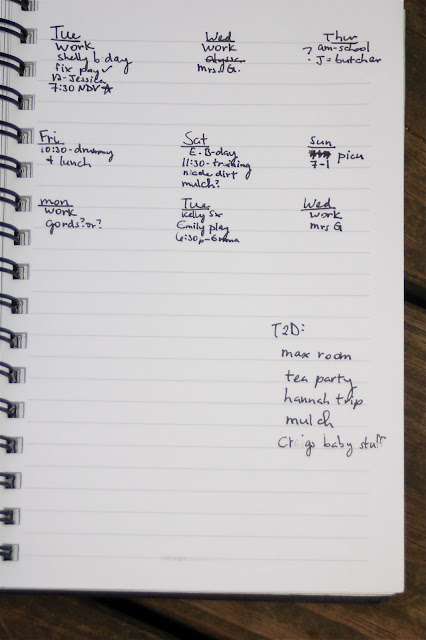 Tue
work
shelly b day
fix play ✓
B-Jessica
7:30 NDV ☆
Wed
work
Mrs. G.
Thur
? am-school
J = butcher
Fri
10:30-
+ lunch
Sat
E. B-day
11:30-training
nicole dirt
mulch?
Sun
pics
7-1
mon
work
gords? or?
Tue
Kelly Sx
Emily play
6:30p-
Wed
work
mrs G
T2D:
max room
tea party
hannah trip
mulch
Craigs baby stuff